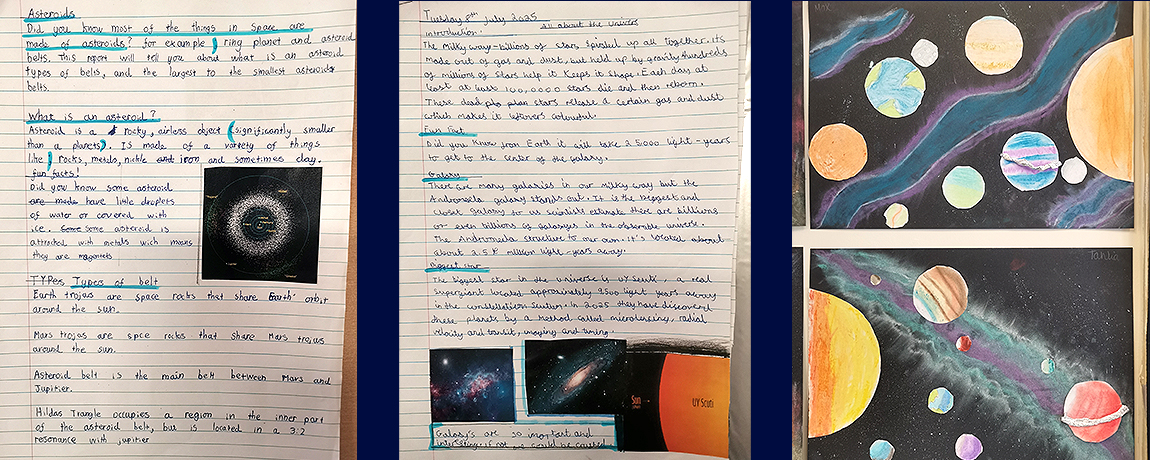 Asteroids
Did you know most of the things in Space are
made of asteroids? for example, ring planet and asteroid
belts. This report will tell you about what is an asteroid
types of belts, and the largest to the smallest asteroids
belts.
What is an asteroid?
Asteroid is a rocky, airless object (significantly smaller
than a planets). Is made of a variety of things
like, rocks, metals, nickle and iron and sometimes clay.
fun facts!
Did you know some asteroid
are made have little droplets
of water or covered with
ice. Some Some asteroid is
attracted with metals wich makes
they are magnets
TYPes Types of belt
Earth trojas are space rocks that share Earth' orbit
around the sun.
Mars trojas are spce rocks that share Mars trojas
around the sun.
Asteroid belt is the main belt between Mars and
Jupiter.
Hildas Triangle occupies a region in the inner part
of the asteroid belt, but is located in a 3:2
resonance with jupiter
Tuesday 8th July 2025
All about the univers
introduction.
The Milky way-billions of stars spiraled up all together. its
made out of gas and dust, but held up by gravity hundreds
of millions of stars help it keeps it shape. Each day at
least at least 100,0000 stars die and then reborn.
These stars release a certain gas and dust
which makes it leftovers colourful.
Fun Fact
Did you know from Earth it will take 25000 light-years
to get to the center of the galaxy.
Galaxy
There are many galaxies in our milky way but the
Andromeda galaxy stands out. It is the biggest and
closet Galaxy to us scientists estimate there are billions
or even billions of galaxies in the obserable universe.
The Andromeda structure to our own. it's located around
about 2.5 million light-years away.
Biggest star
The biggest star in the universe is UY Scuti, a real
Supergiant located approximately 9500 light years away
in the constellation Scutum. In 2025 they have discovered
these planets by a method called microlensing, radial
velocity and transit, imaging and timing.
Sun
UY Scuti
Galaxy's are so important and
interesting if not we could be
Max
Tahlia